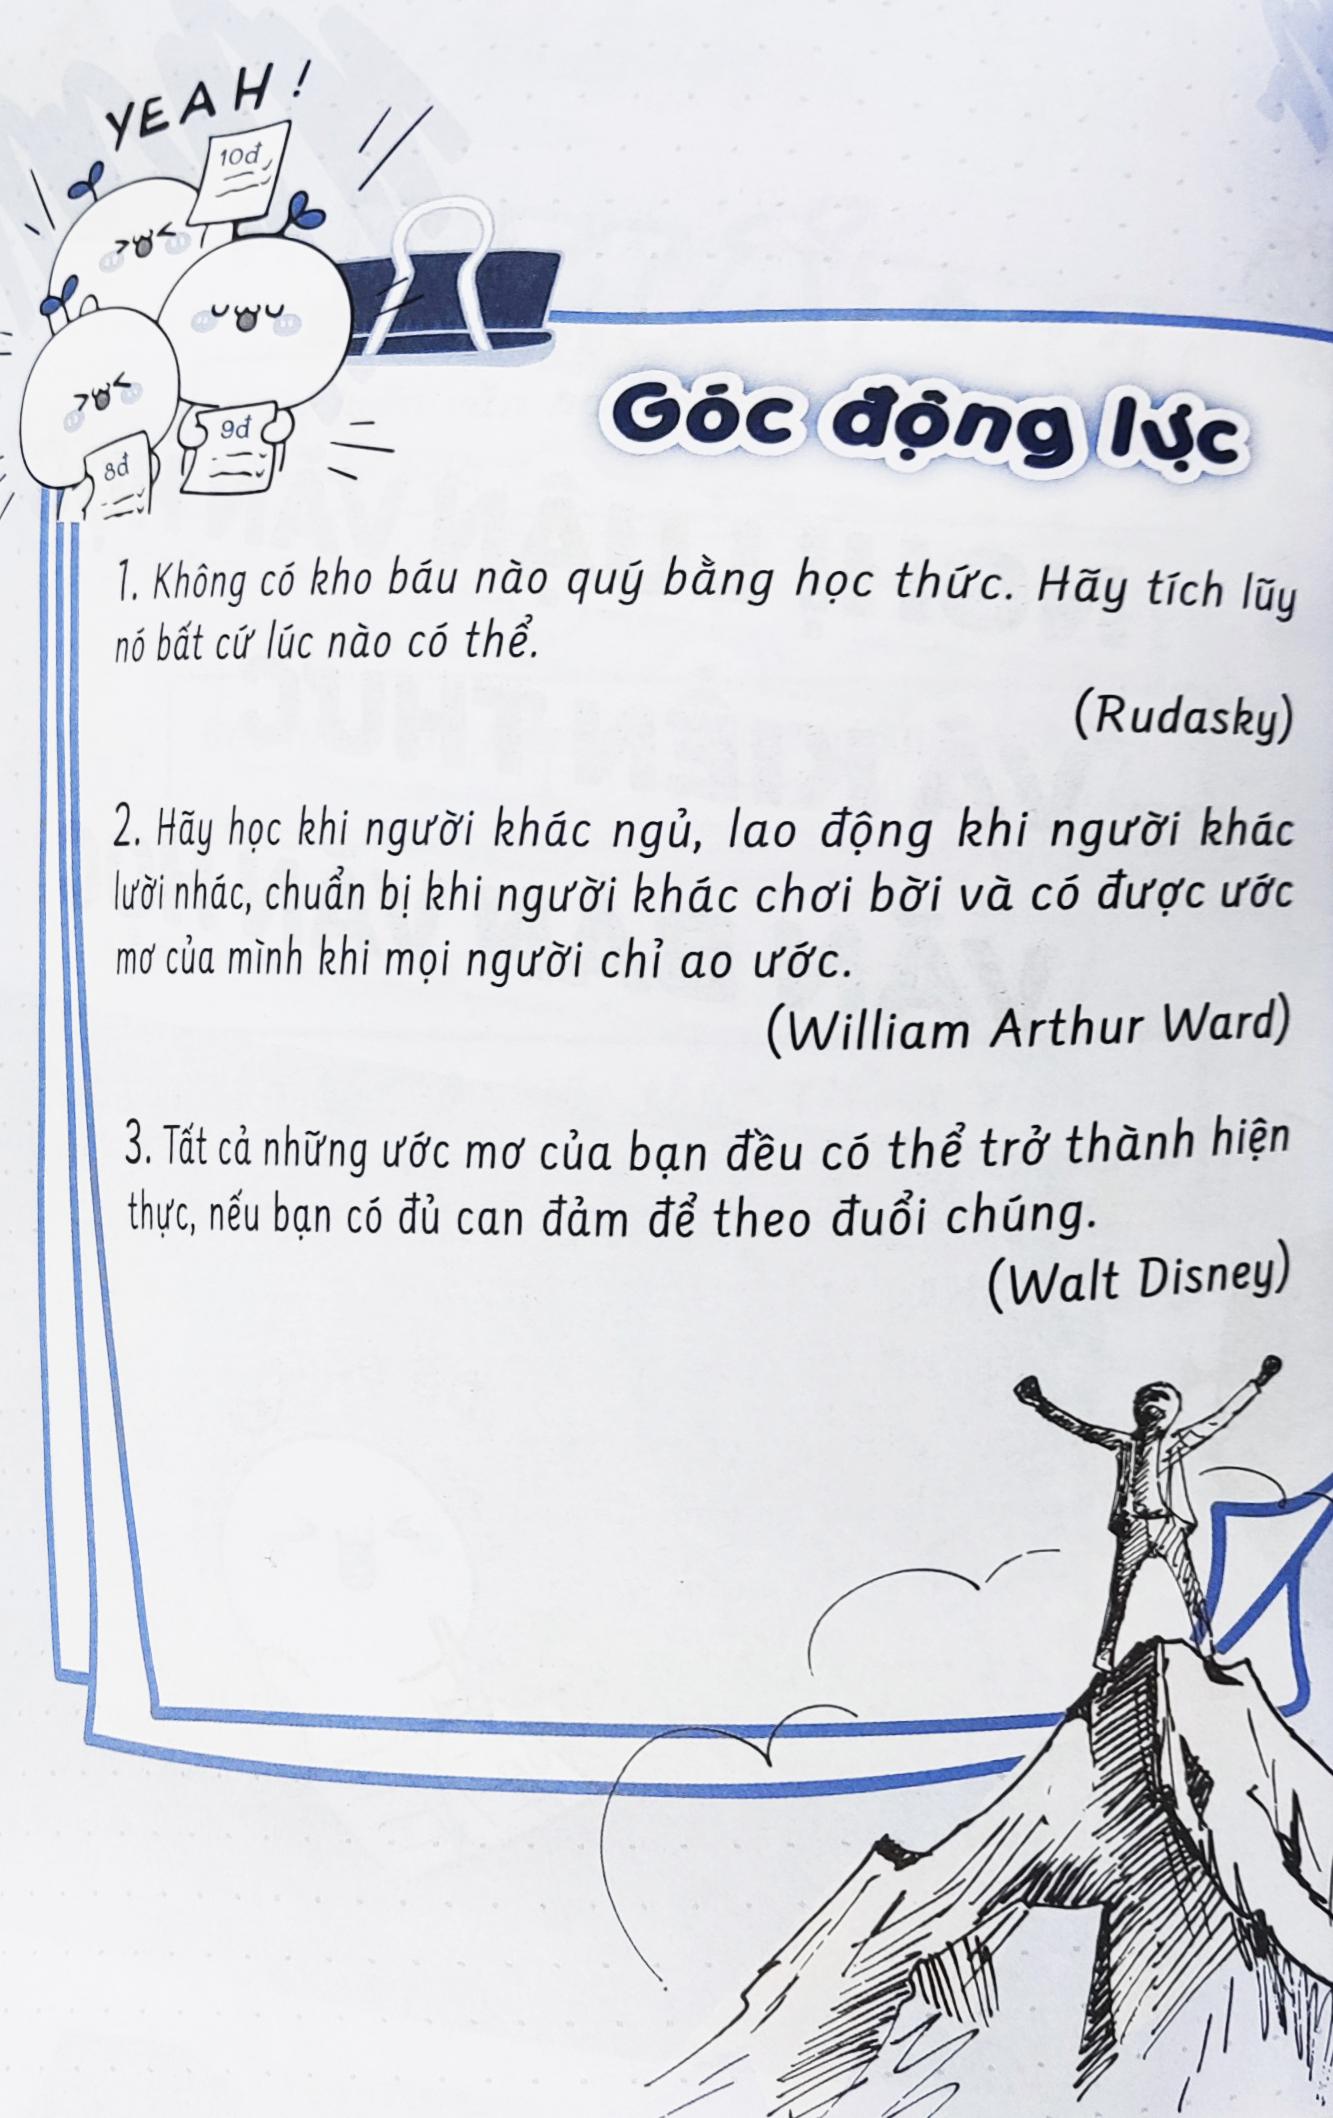 YEAH!
10đ
9đ
8đ
Góc động lực
1. Không có kho báu nào quý bằng học thức. Hãy tích lũy
nó bất cứ lúc nào có thể.
(Rudasky)
2. Hãy học khi người khác ngủ, lao động khi người khác
lười nhác, chuẩn bị khi người khác chơi bời và có được ước
mơ của mình khi mọi người chỉ ao ước.
(William Arthur Ward)
3. Tất cả những ước mơ của bạn đều có thể trở thành hiện
thực, nếu bạn có đủ can đảm để theo đuổi chúng.
(Walt Disney)